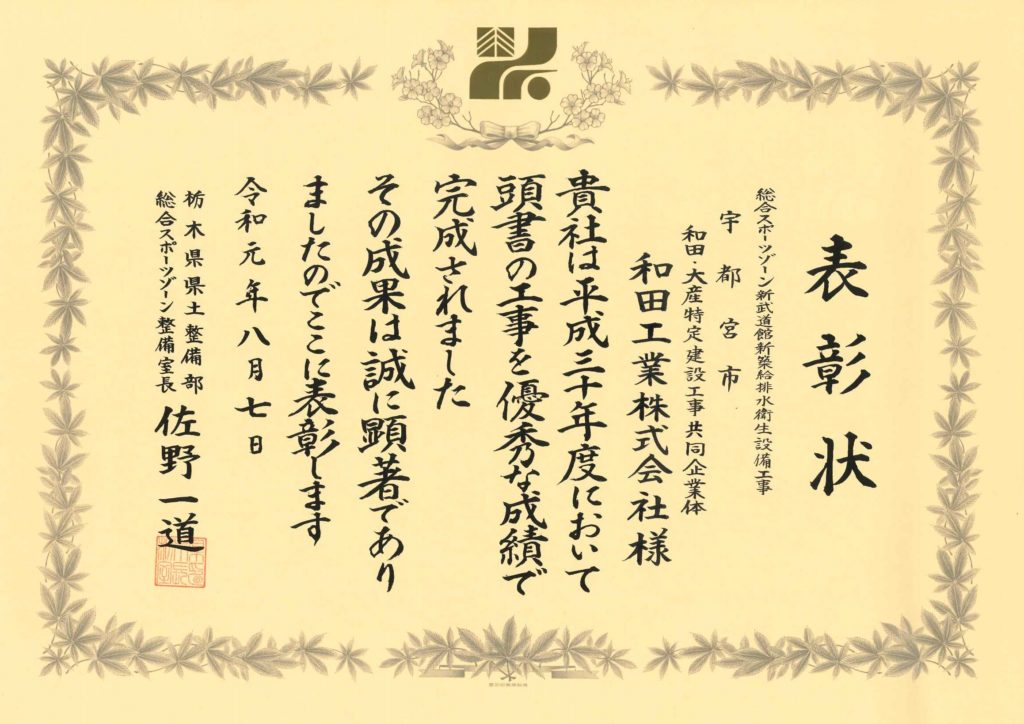 表彰状
総合スポーツゾーン新武道館新築給排水衛生設備工事
宇都宮市
和田・大産特定建設工事共同企業体
和田工業株式会社様
貴社は平成三十年度において
頭書の工事を優秀な成績で
完成されました
その成果は誠に顕著であり
ましたのでここに表彰します
令和元年八月七日
栃木県県土整備部
総合スポーツゾーン整備室長
佐野一道